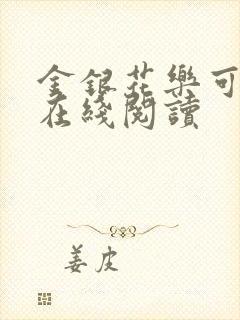 金銀花樂可
在綫閱讀
姜皮